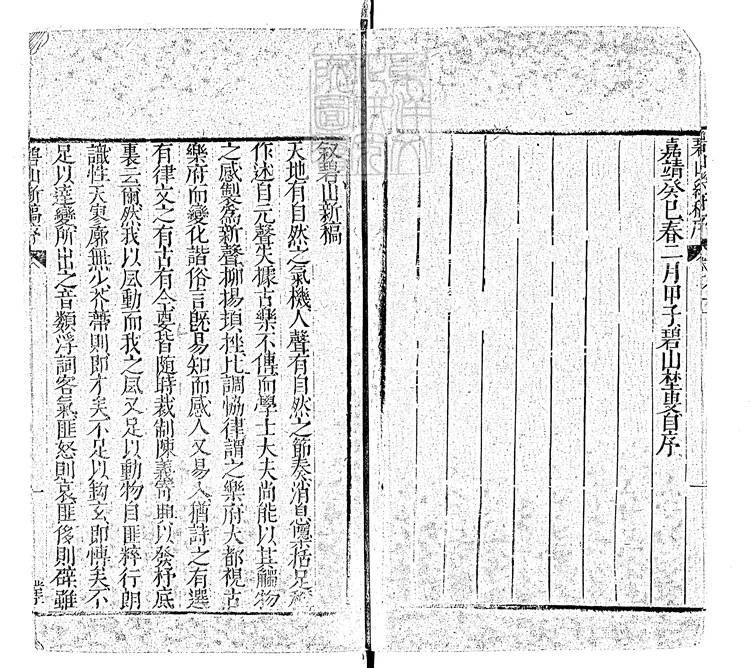 嘉靖癸巳春二月甲子碧山埜叟自序
敘碧山新稿
天地有自然之氣機人聲有自然之節奏消息檃括足
作述自元聲失據古樂不傳而學士大夫尚能以其觸物
之感製為新聲抑揚頓挫比調恊律謂之樂府大都視古
樂府而變化諧俗言旣易知而感人又易入猶詩之有選
有律文之有古有今要皆隨時裁制陳義寄興以發杼底
裏云爾然我以風動而我之風又足以動物自匪粹行朗
識性天寥廓無少芥蔕則即才矣不足以鉤玄即博矣不
足以達變所出之音類浮詞客氣匪怒則哀匪侈則礔雖
碧山新稿序
一